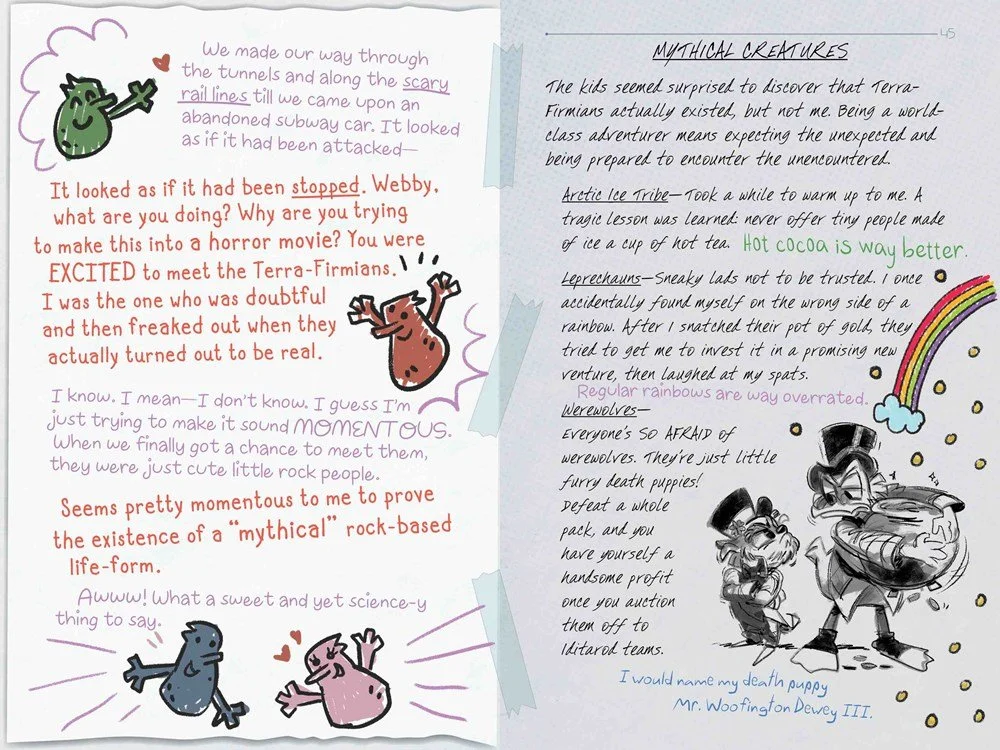 We made our way through
the tunnels and along the scary
rail lines till we came upon an
abandoned subway car. It looked
as if it had been attacked—
It looked as if it had been stopped. Webby,
what are you doing? Why are you trying
to make this into a horror movie? You were
EXCITED to meet the Terra-Firmians.
I was the one who was doubtful
and then freaked out when they
actually turned out to be real.
I know. I mean—I don't know. I guess I'm
just trying to make it sound MOMENTOUS.
When we finally got a chance to meet them,
they were just cute little rock people.
Seems pretty momentous to me to prove
the existence of a "mythical" rock-based
life-form.
Awww! What a sweet and yet science-y
thing to say.
45
MYTHICAL CREATURES
The kids seemed surprised to discover that Terra-
Firmians actually existed, but not me. Being a world-
class adventurer means expecting the unexpected and
being prepared to encounter the unencountered.
Arctic Ice Tribe—Took a while to warm up to me. A
tragic lesson was learned: never offer tiny people made
of ice a cup of hot tea. Hot cocoa is way better.
Leprechauns—Sneaky lads not to be trusted. I once
accidentally found myself on the wrong side of a
rainbow. After I snatched their pot of gold, they
tried to get me to invest it in a promising new
venture, then laughed at my spats.
Regular rainbows are way overrated.
Werewolves—
Everyone's SO AFRAID of
werewolves. They're just little
furry death puppies!
Defeat a whole
pack, and you
have yourself a
handsome profit
once you auction
them off to
Iditarod teams.
I would name my death puppy
Mr. Woofington Dewey III.